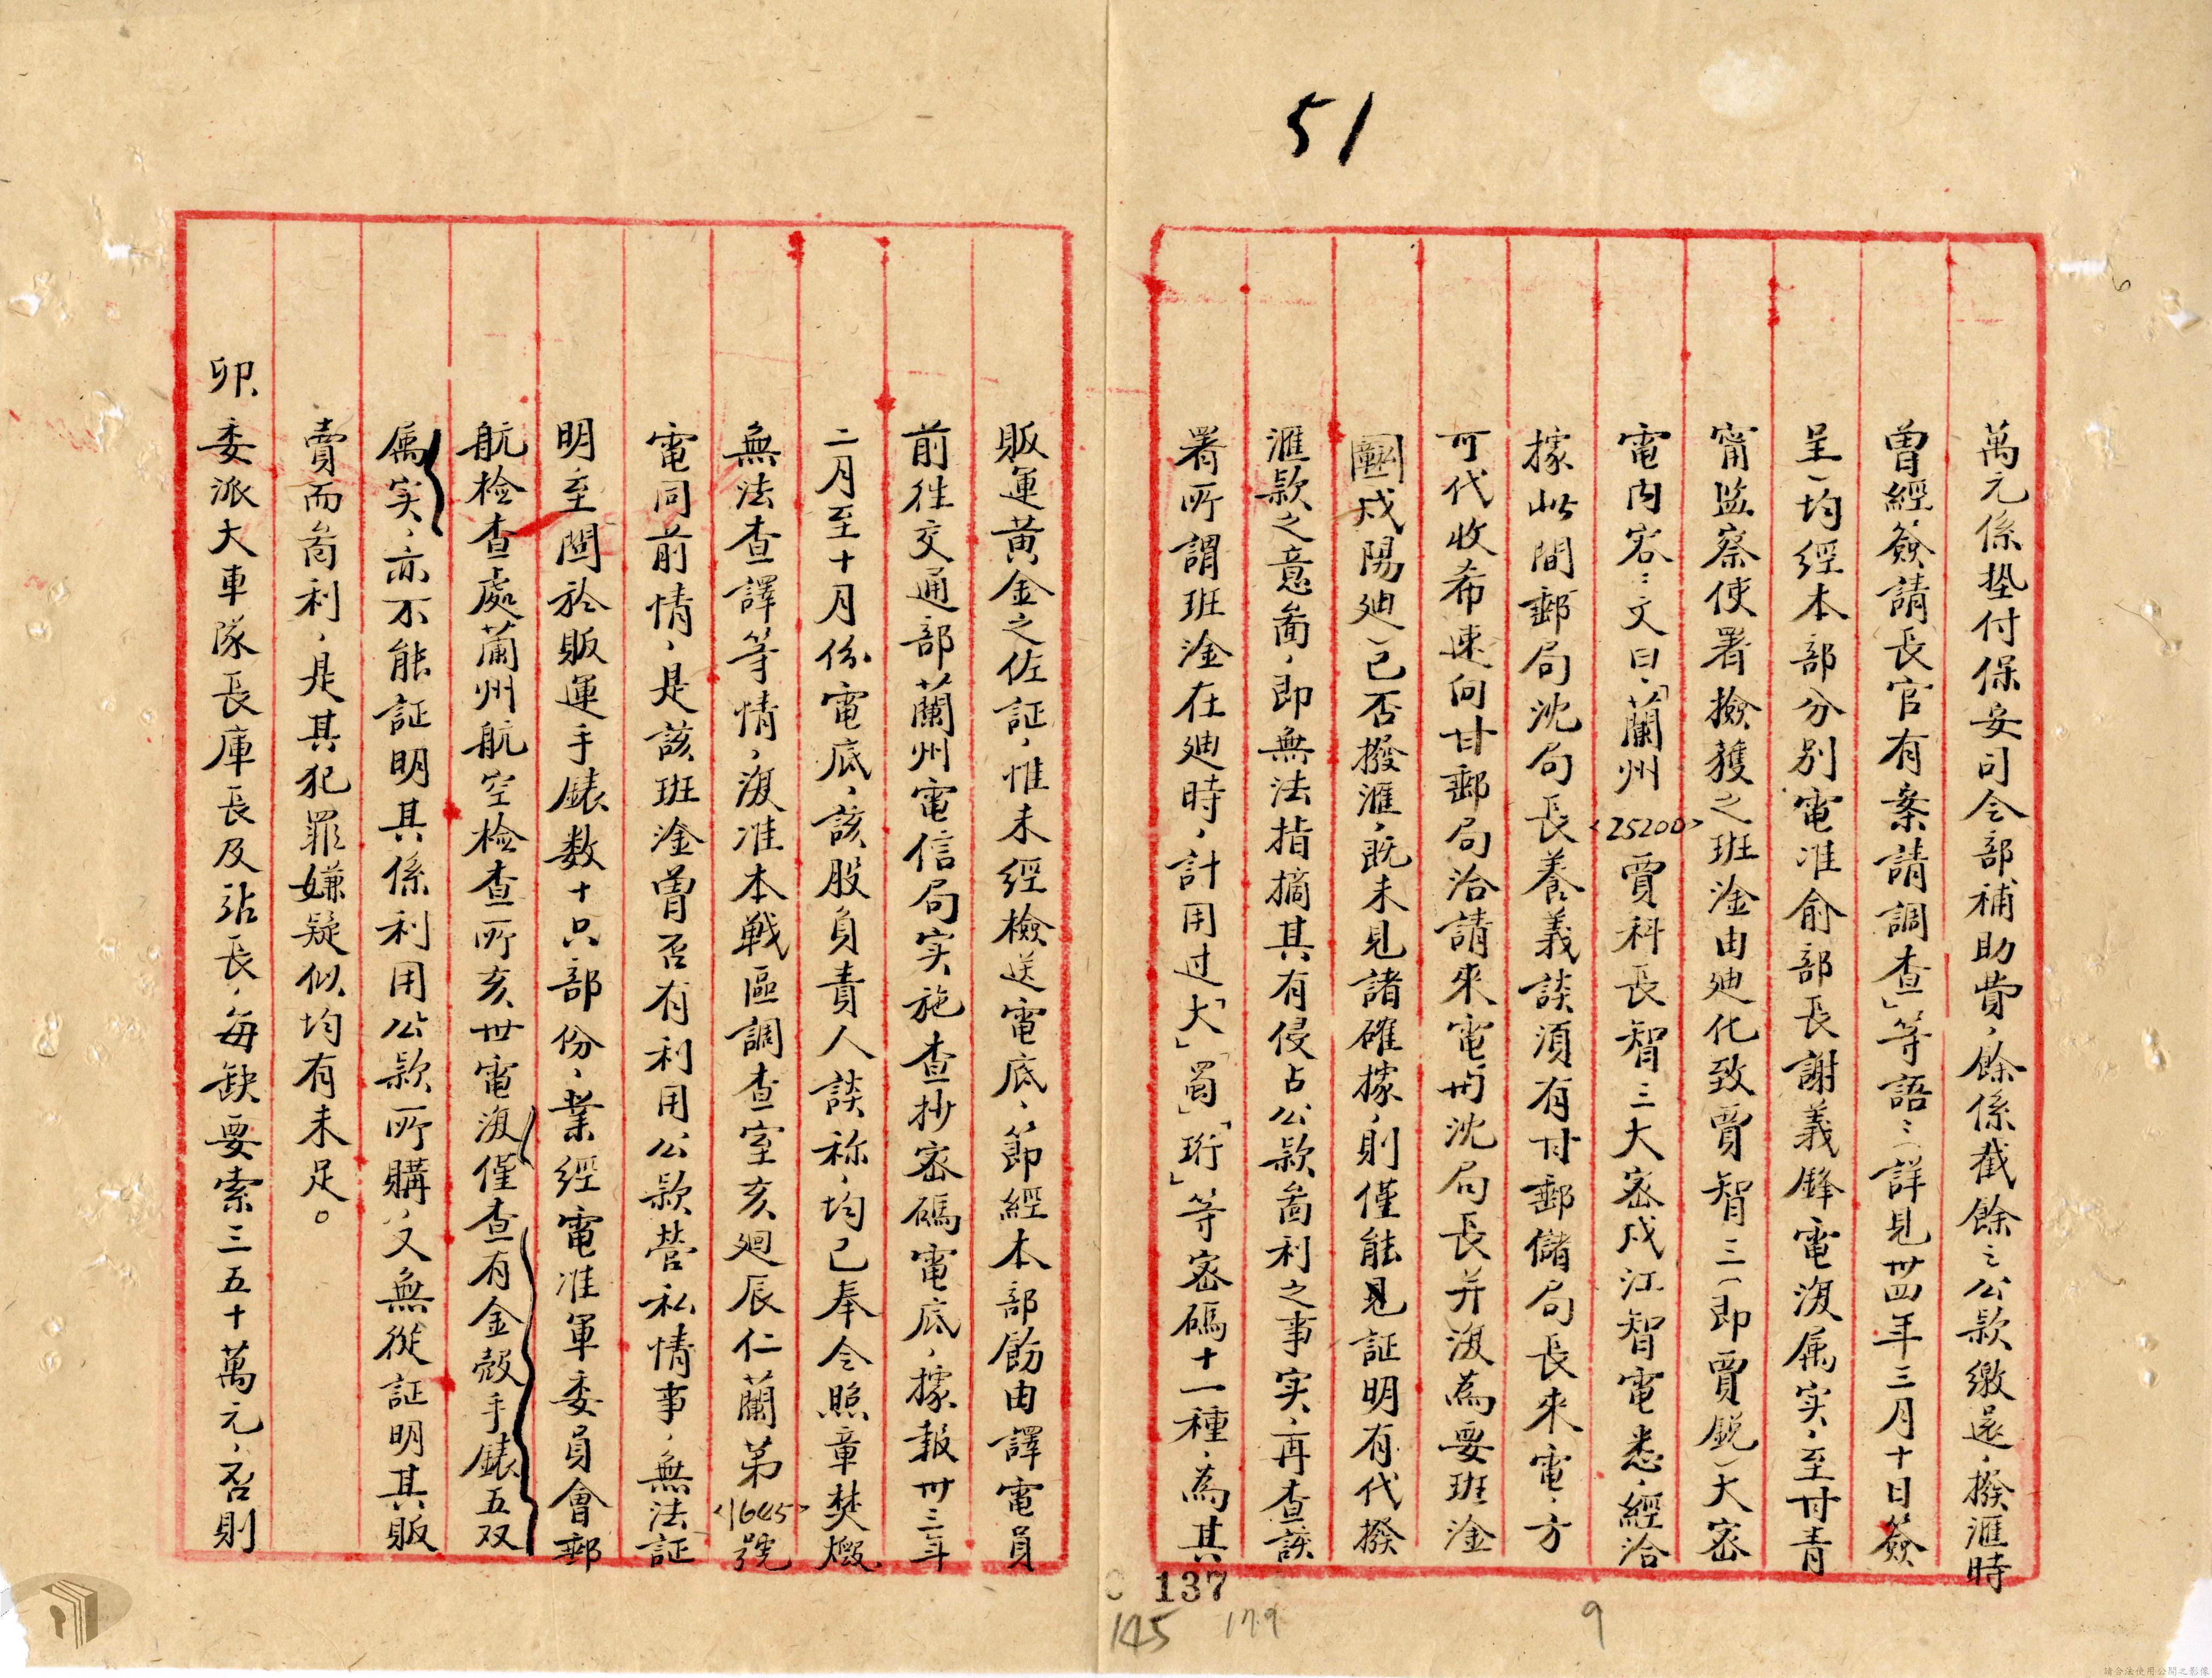 51
萬元係墊付保安司令部補助費，餘係截餘之公款繳還，撥滙時
曾經簽請長官有案請調查」等語：詳見卅四年三月十日簽
呈）均經本部分別電准俞部長謝義鋒電復属实，至甘青
甯監察使署撿獲之班淦由廸化致賈智三（即賈銳）大密
電內容：文曰，「蘭州<25200>賈科長智三大密戍江智電悉，經洽
據此間郵局沈局長養義談須有甘郵儲局長來電，方
可代收希速向甘郵局洽請來電與沈局長并復為要班淦
戍陽廸）已否撥滙，既未見諸確據，則僅能見証明有代撥
滙款之意啚，即無法指摘其有侵占公款啚利之事实，再查該
署所謂班淦在廸時，計用过「大」「蜀」「珩」等密碼十一種，為其
販運黃金之佐証，惟未經檢送電底，節經本部飭由譯電員
前往交通部蘭州電信局实施查抄密碼電底，據報卅三年
二月至十月份電底，該股負責人談称，均已奉令照章焚燬，
無法查譯等情，復准本戰區調查室亥廻辰仁蘭第<1645>號
電同前情，是該班淦曾否有利用公款營私情事，無法証
明，至關於販運手錶数十只部份，業經電准軍委員會郵
航检查處蘭州航空检查所亥世電復僅查有金殼手錶五双
属实，亦不能証明其係利用公款所購，又無從証明其販
賣而啚利，是其犯罪嫌疑似均有未足。
卯、委派大車隊長庫長及站長，每缺要索三五十萬元，否則
137
145
179
9
請合法使用公開之影像